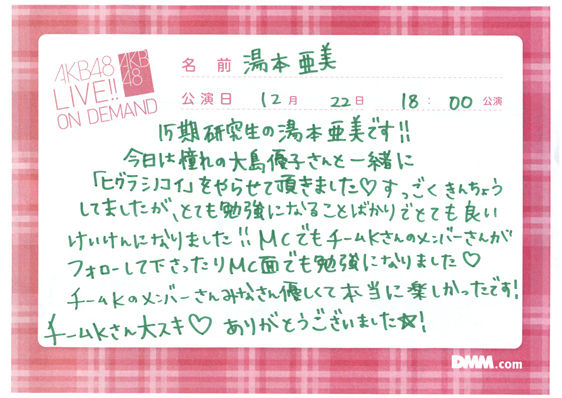 AKB48
LIVE!!
ON DEMAND
AKB
48
名前 湯本亜美
公演日 12月 22日 18:00 公演
15期研究生の湯本亜美です!!
今日は憧れの大島優子さんと一緒に
「ヒグラシノコイ」をやらせて頂きました♡すっごくきんちょう
してましたが、とても勉強になることばかりでとても良い
けいけんになりました!!MCでもチームKさんのメンバーさんが
フォローして下さったりMC面でも勉強になりました♡
チームKのメンバーさんみなさん優しくて本当に楽しかったです!
チームKさん大スキ♡ ありがとうございました☆!
DMM.com